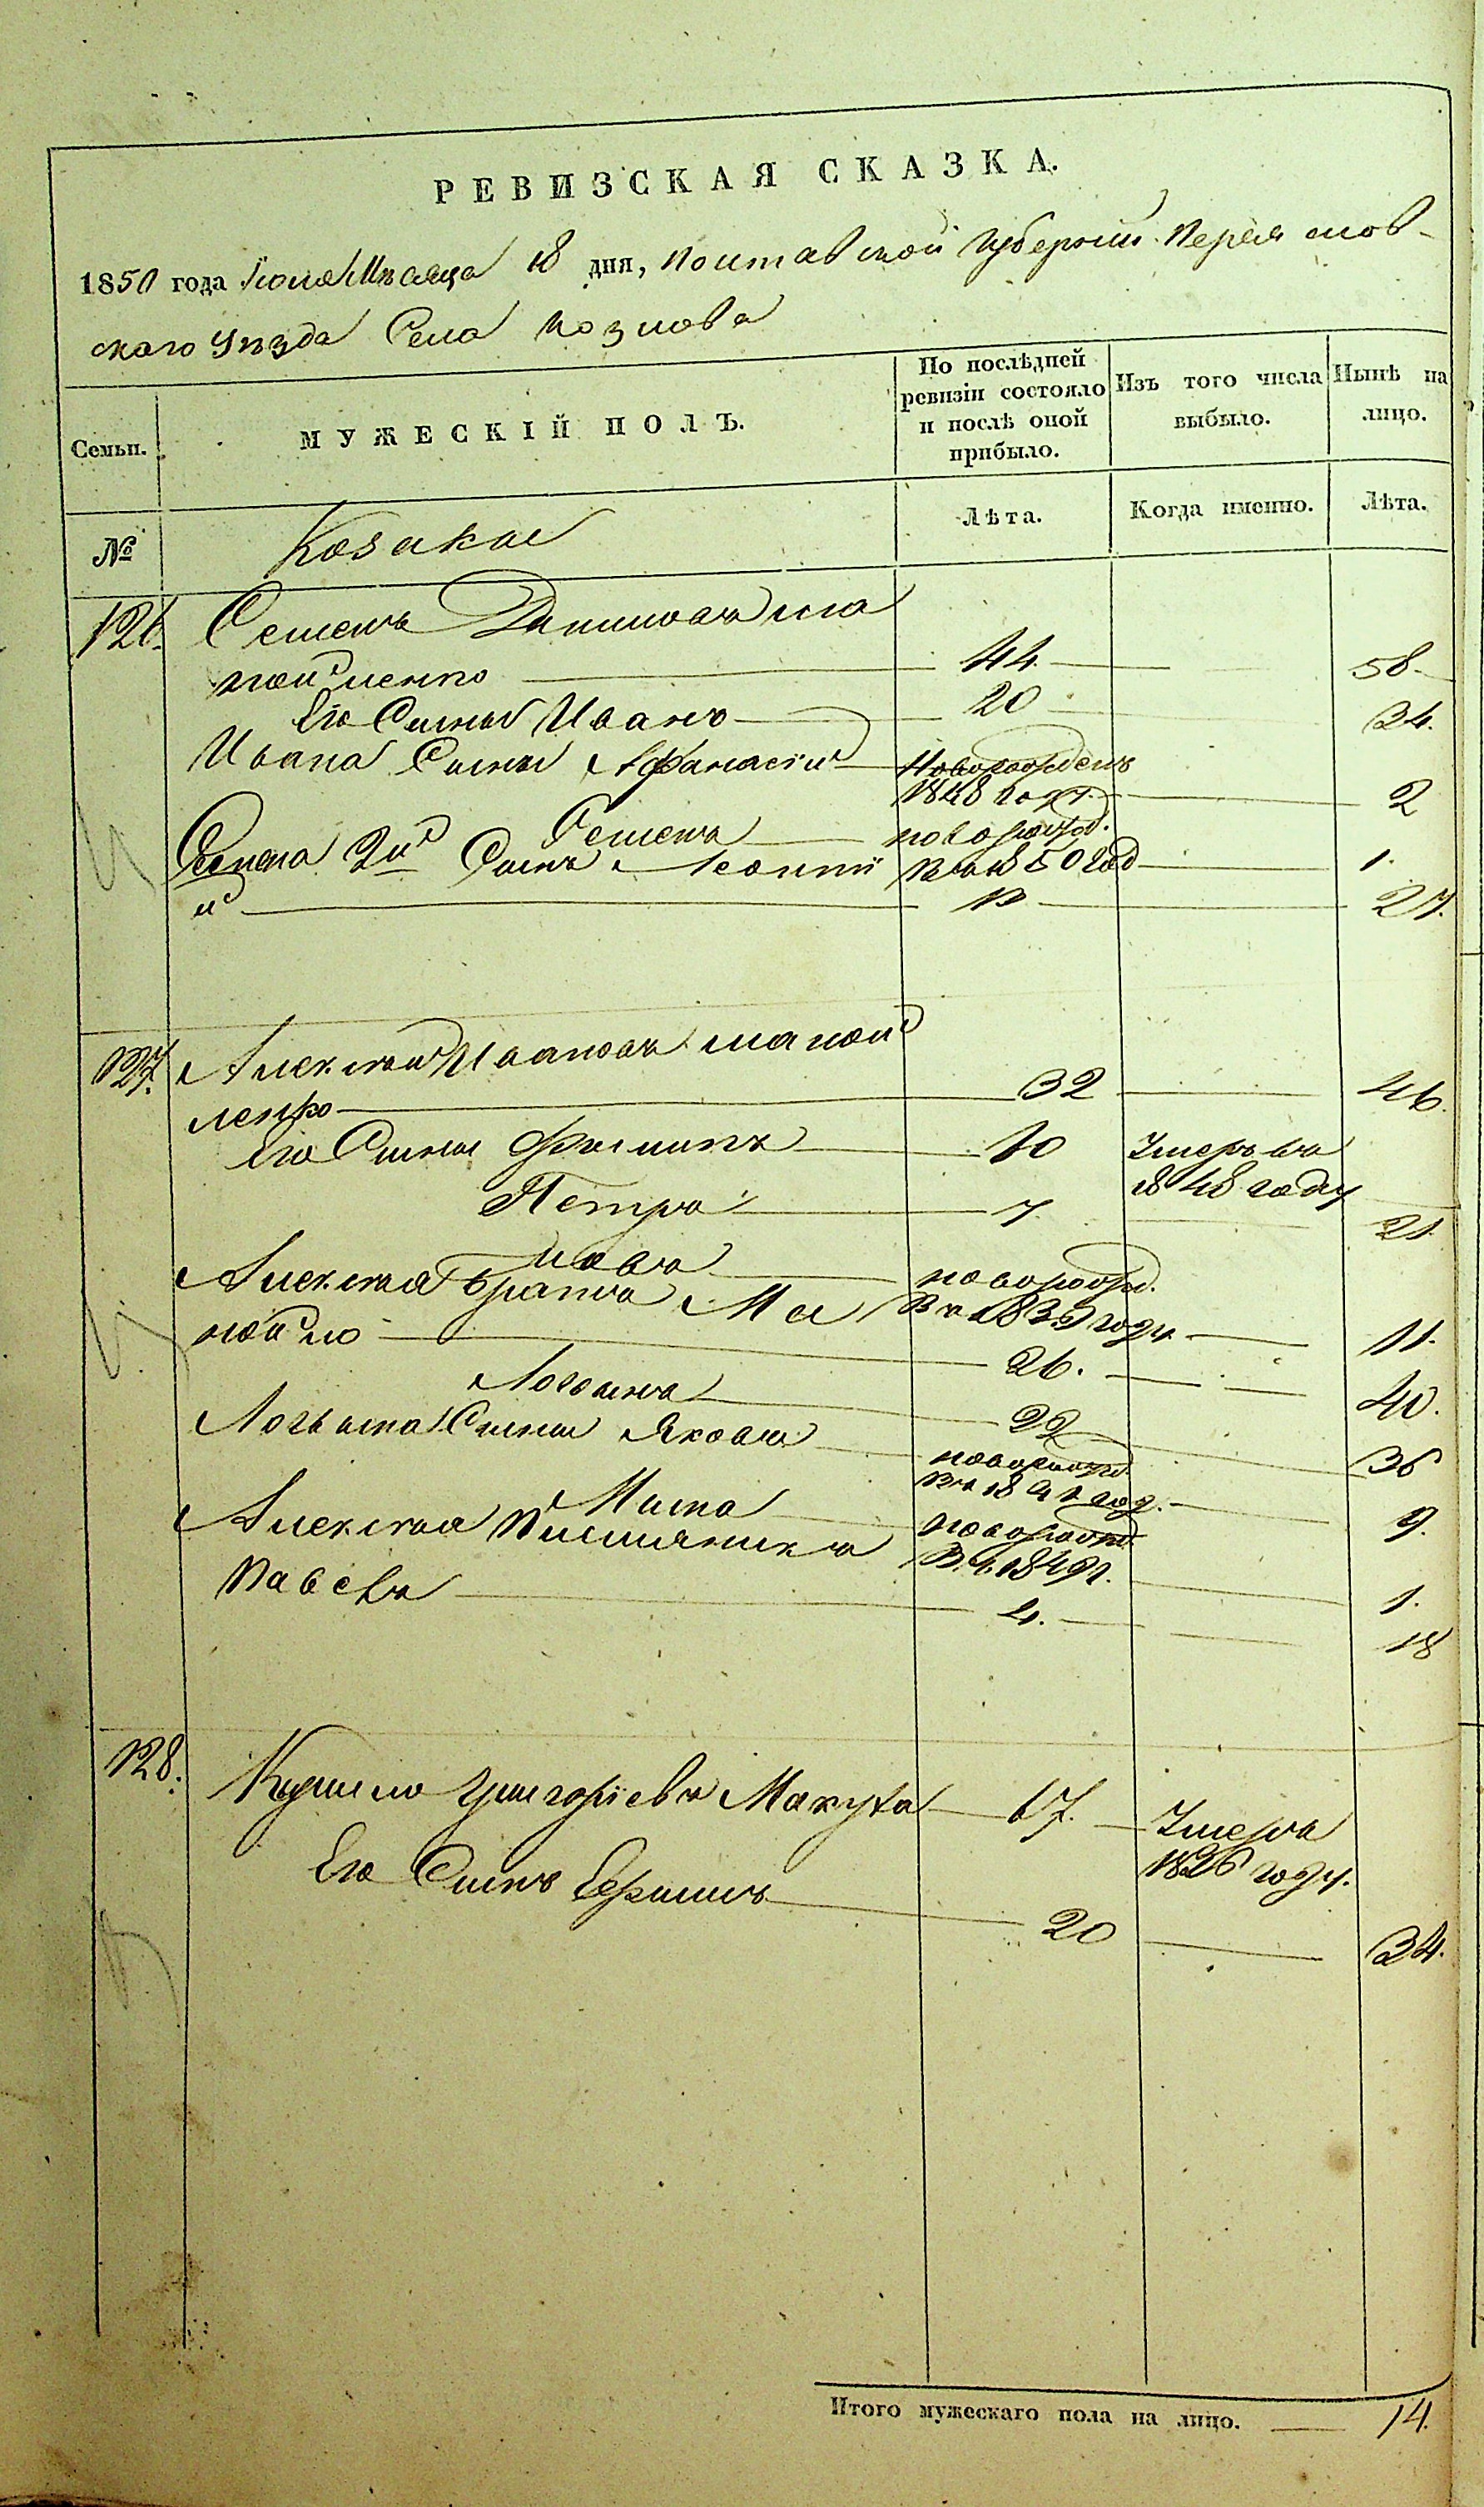 РЕВИЗСКАЯ СКАЗКА.
1850 года Іюля Мѣсяца 18 дня, Полтавской Губерніи Переяслов-
скаго Уѣзда Села Козлова
Семьи.
МУЖЕСКІЙ ПОЛЪ.
По послѣдней ревизіи состояло и послѣ оной прибыло.
Изъ того числа выбыло.
Нынѣ на лицо.
№
Козаки
Лѣта.
Когда именно.
Лѣта.
126. Семенъ Даниловъ Ма
нойленко 44. 58.
Его Сыны Иванъ 20 34.
Ивана Сыны Афанасій Новорожденъ
1848 год. 2
Семенъ новорожд.
Семена 2й Сынъ Леонті въ 1850 год 1.
й 13 27.
127. Алексѣй Ивановъ Маной
ленко 32 46.
Его Сыны Филипъ 10 Умеръ въ
1848 году
Петръ 7 21.
новорожд.
Алексѣя Братья Ма Въ 1839 году 11.
нойло 26. 40.
Логвинъ 22 36
Логвина Сыны Яковъ новорожд.
въ 1841 год. 9.
Никита новорожд.
Алексѣя Въ 1849 г. 1.
Павелъ 4. 18
128. Кирило Григоріевъ Макуха 67. Умеръ
1836 году.
Его Сынъ Ефимъ 20 34.
Итого мужескаго пола на лицо. 14.